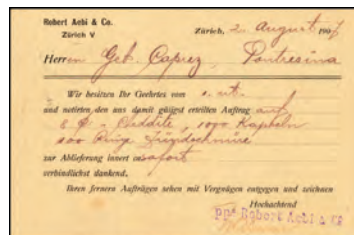 Robert Aebi & Co.
Zürich V
Zürich, 2. August 1907
Herren Geb. Caprez, Pontresina
Wir besitzen Ihr Geehrtes vom 1. ct.
und notirten den uns damit gütigst erteilten Auftrag auf
Cheddite, 1000 Kapseln
Ringe Zündschnüre
zur Ablieferung innert sofort
verbindlichst dankend.
Ihren fernern Aufträgen sehen mit Vergnügen entgegen und zeichnen
Hochachtend
ppa Robert Aebi & Co